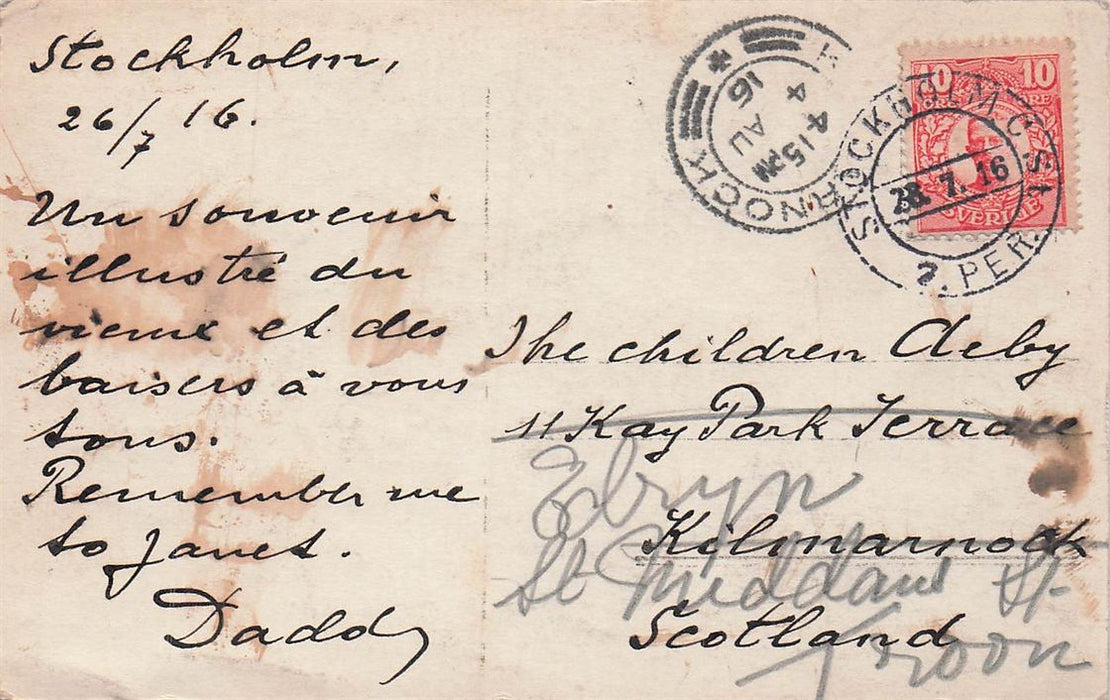 Stockholm,
26/7 16.
Un souvenir
illustré du
vieux et des
baisers à vous
tous.
Remember me
to Janet.
Daddy
The children Aeby
11 Kay Park Terrace
Kilmarnock
Scotland
St Meddans St.
Troon
RNOCK
4 15 PM
4 AU
16
STOCKHOLM C.
28. 7. 16
2. PER.
10 10
SVERIGE